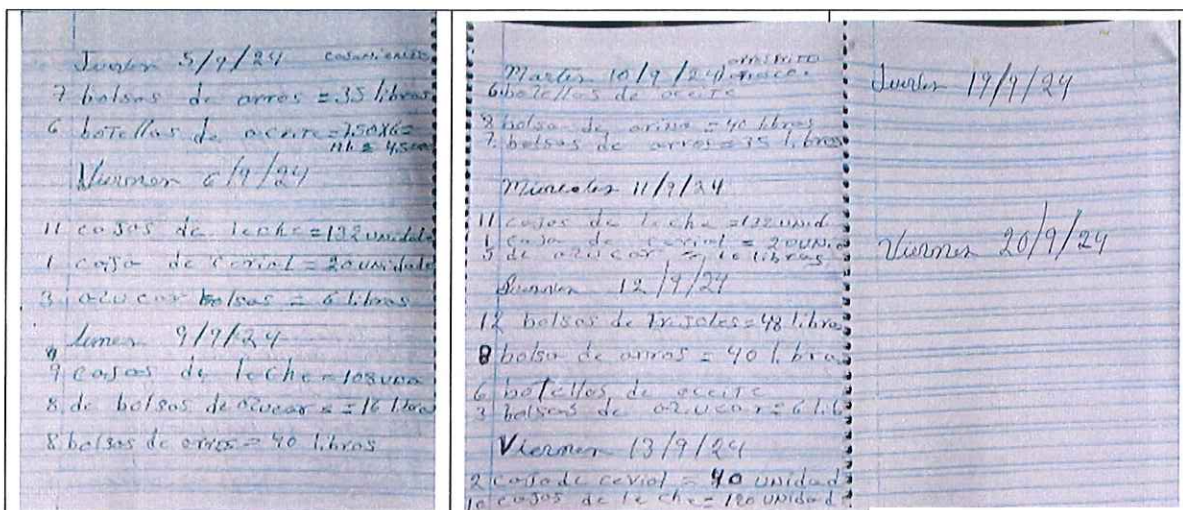 Jueves 5/9/24 casamiento
7 bolsas de arros = 35 libras
6 botellas de aceite = 750x6=
ml = 4,500
Viernes 6/9/24
11 cajas de leche = 132 unidad
1 caja de cerial = 20 unidade
3 azucar bolsas = 6 libras
lunes 9/9/24
9 cajas de leche = 108 uni
8 de bolsas de azucar = 16 libra
8 bolsas de arros = 40 libras
Martes 10/9/24
6 botellas de aceite
8 bolsa de arina = 40 libras
7 bolsas de arros = 35 libras
Miercoles 11/9/24
11 cajas de leche = 132 unid
1 caja de cerial = 20 unid
5 de azucar = 10 libras
12/9/24
12 bolsas de frijoles = 48 libra
8 bolsa de arros = 40 libras
6 botellas de aceite
3 bolsas de azucar = 6 lib
Viernes 13/9/24
2 caja de cerial = 40 unidad
10 cajas de leche = 120 unidad
Jueves 19/9/24
Viernes 20/9/24